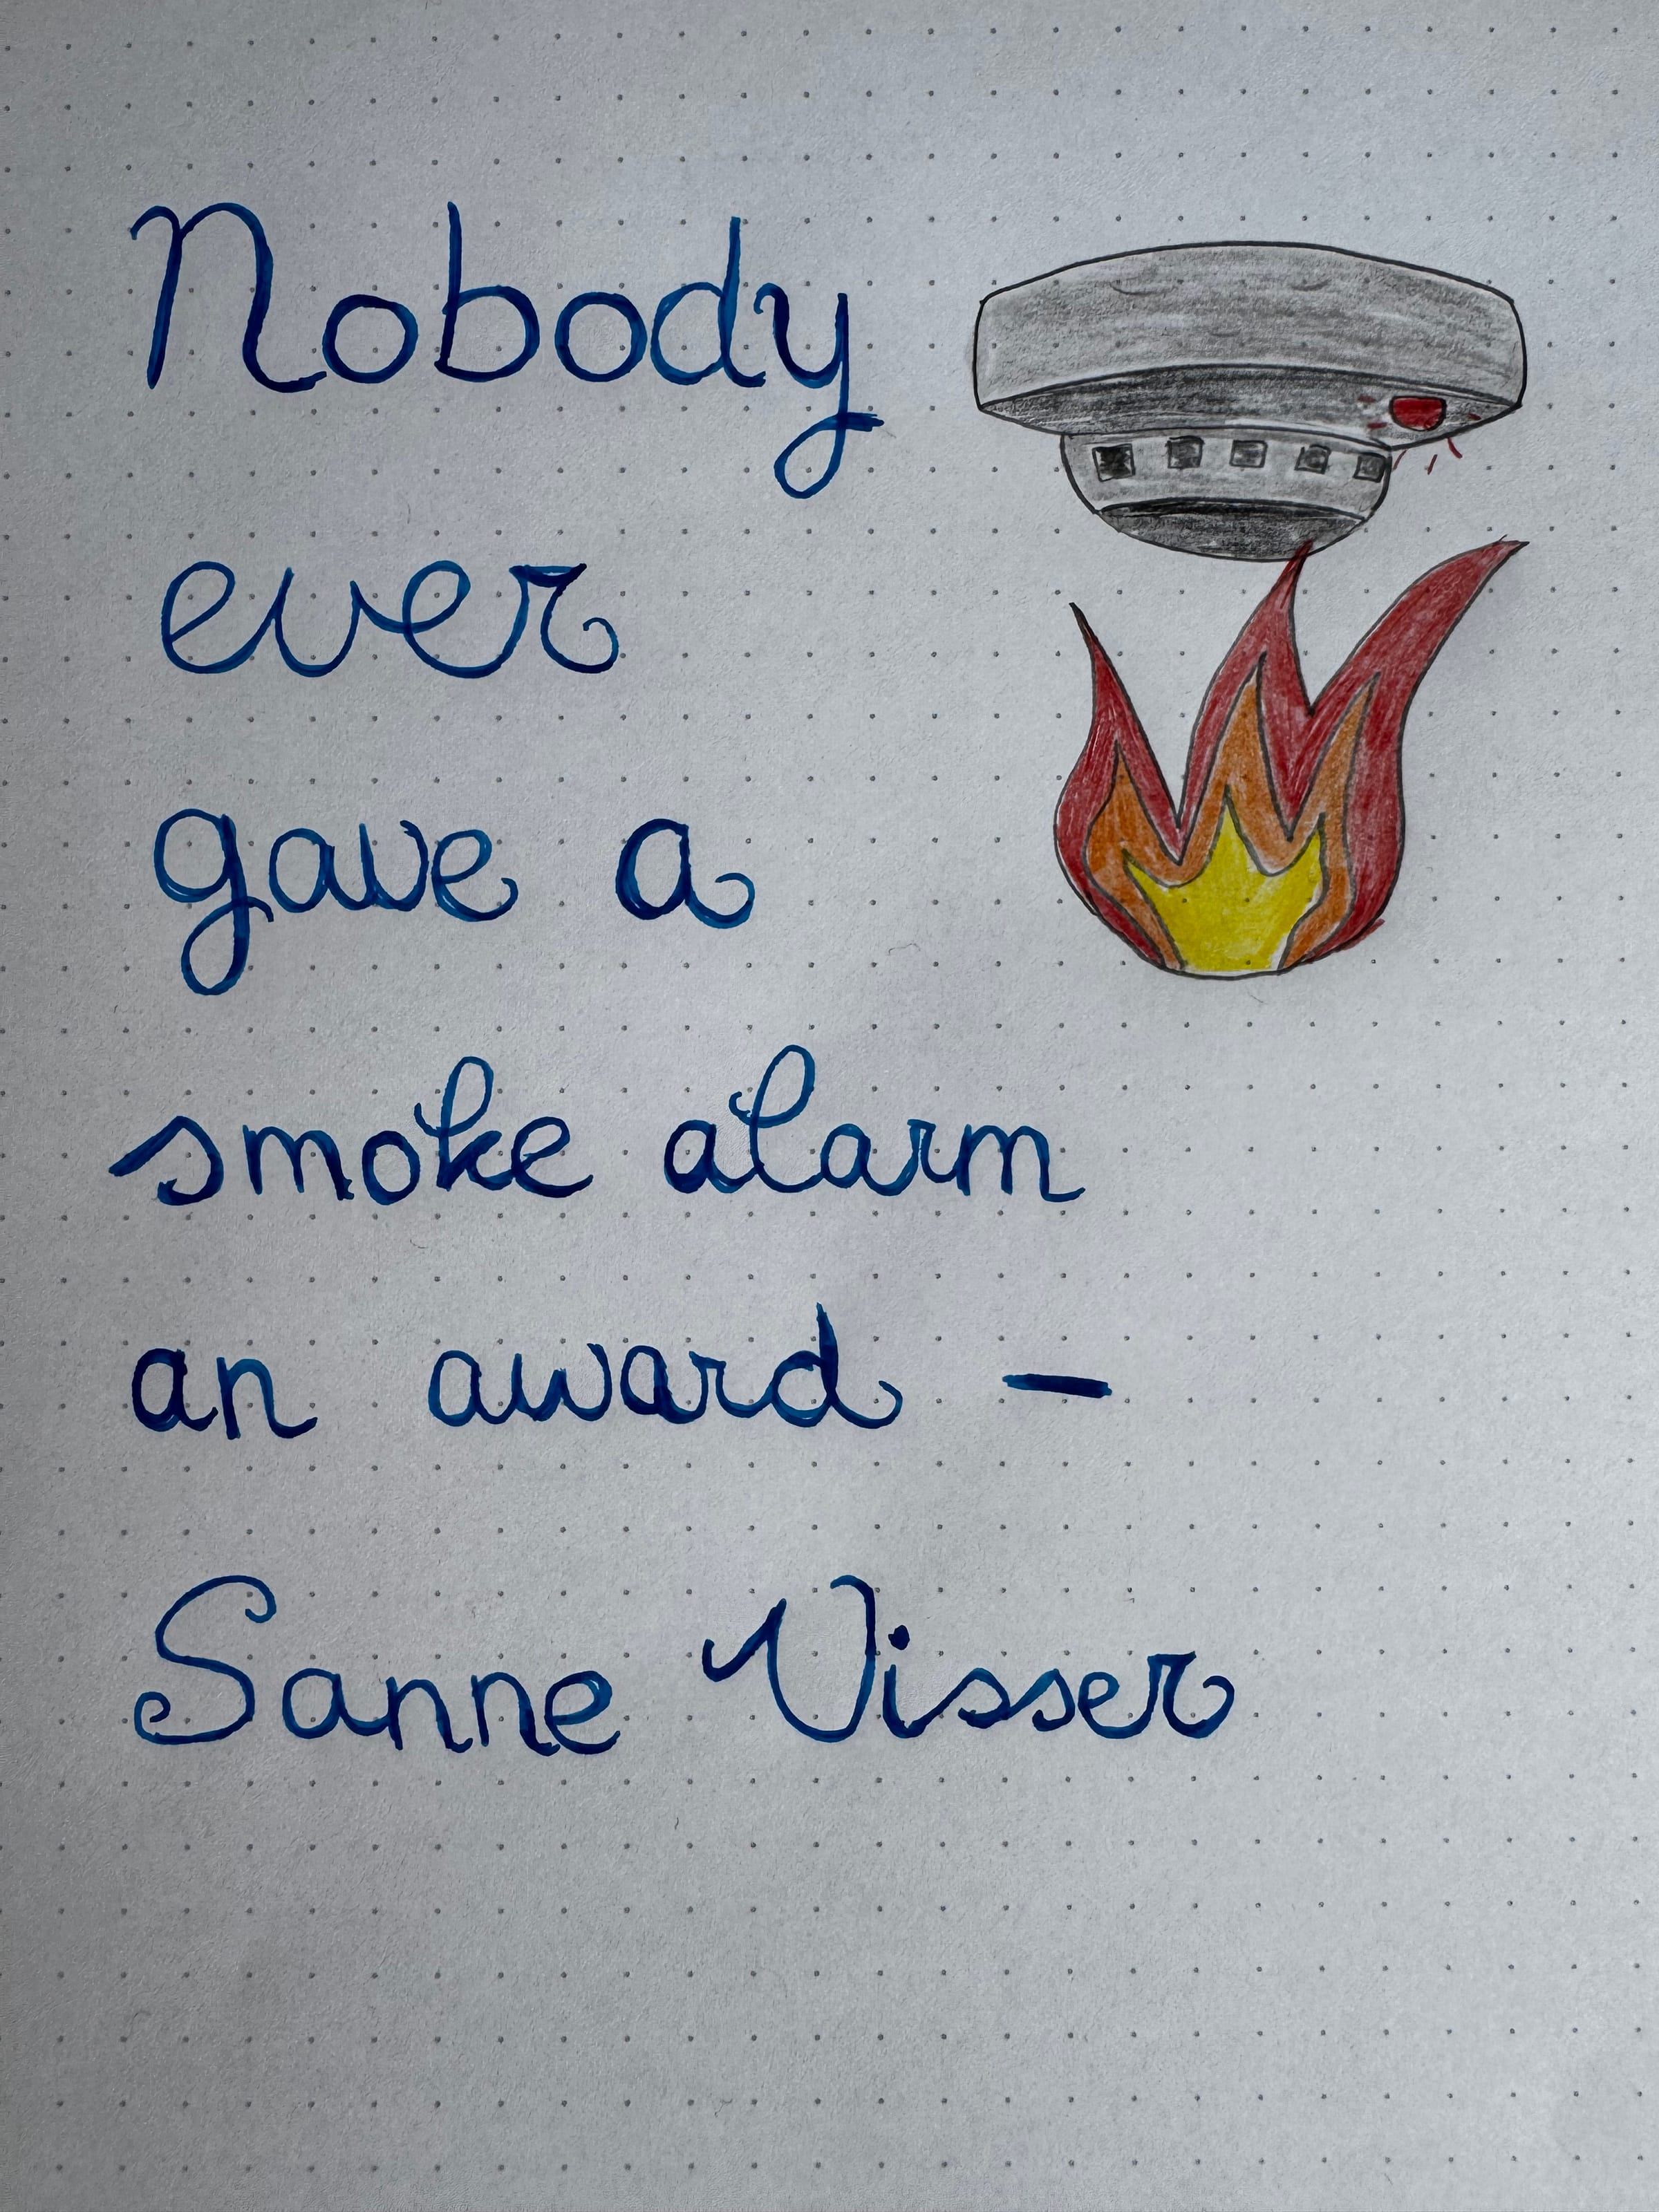 Nobody
ever
gave a
smoke alarm
an award –
Sanne Visser